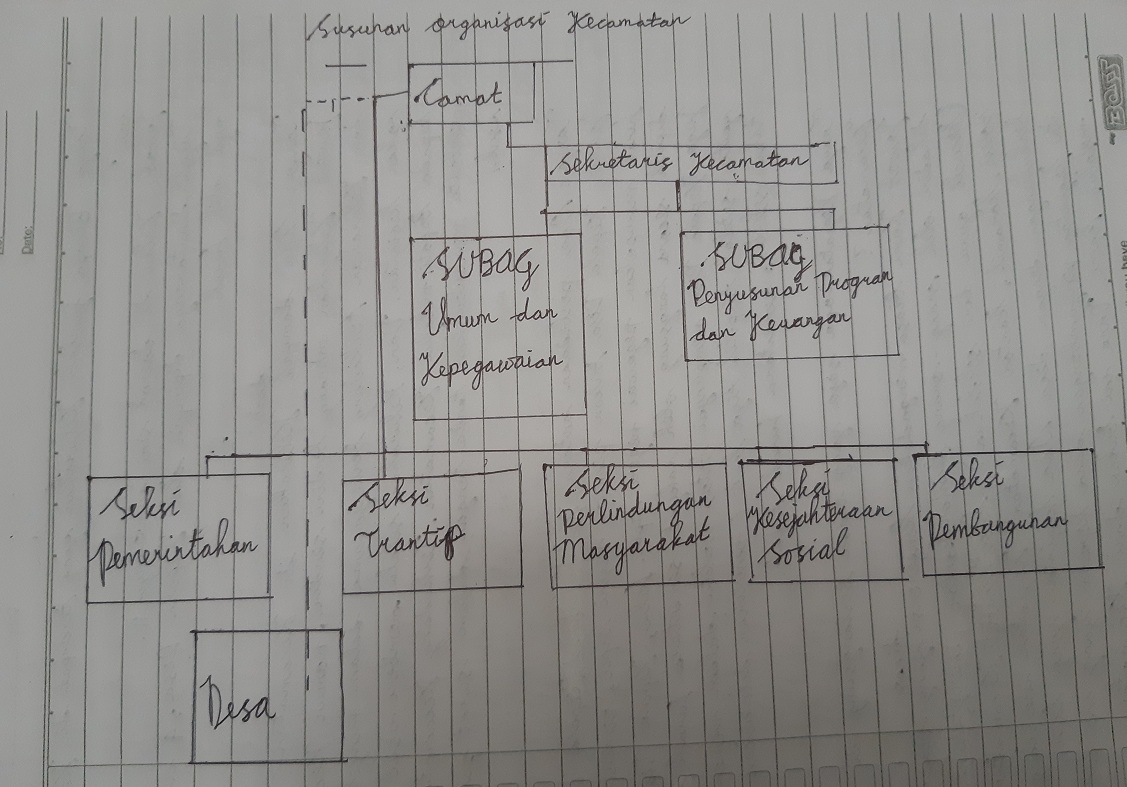 Susunan organisasi Kecamatan
Camat
Sekretaris Kecamatan
SUBAG
Umum dan
Kepegawaian
SUBAG
Penyusunan Program
dan Keuangan
Seksi
Pemerintahan
Seksi
Trantip
Seksi
Perlindungan
Masyarakat
Seksi
Kesejahteraan
Sosial
Seksi
Pembangunan
Desa
Date:
BOSS